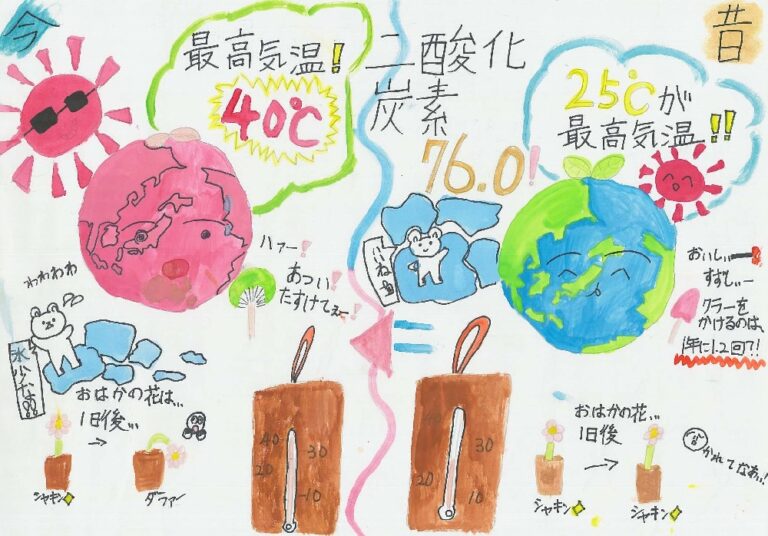 今
最高気温!
40℃
二酸化
炭素
76.0!
昔
25℃が
最高気温!!
ハァー!
あつい!
たすけてぇー!
わわわわ
氷少なっ!!
いいね
おいしぃー
すずしぃー
クラーを
かけるのは、
1年に1.2回?!
おはかの花は…
1日後…
→
シャキン
ダーファー
40
30
20
10
40
30
20
10
おはかの花…
1日後
→
シャキン
シャキン
かれてなあい!